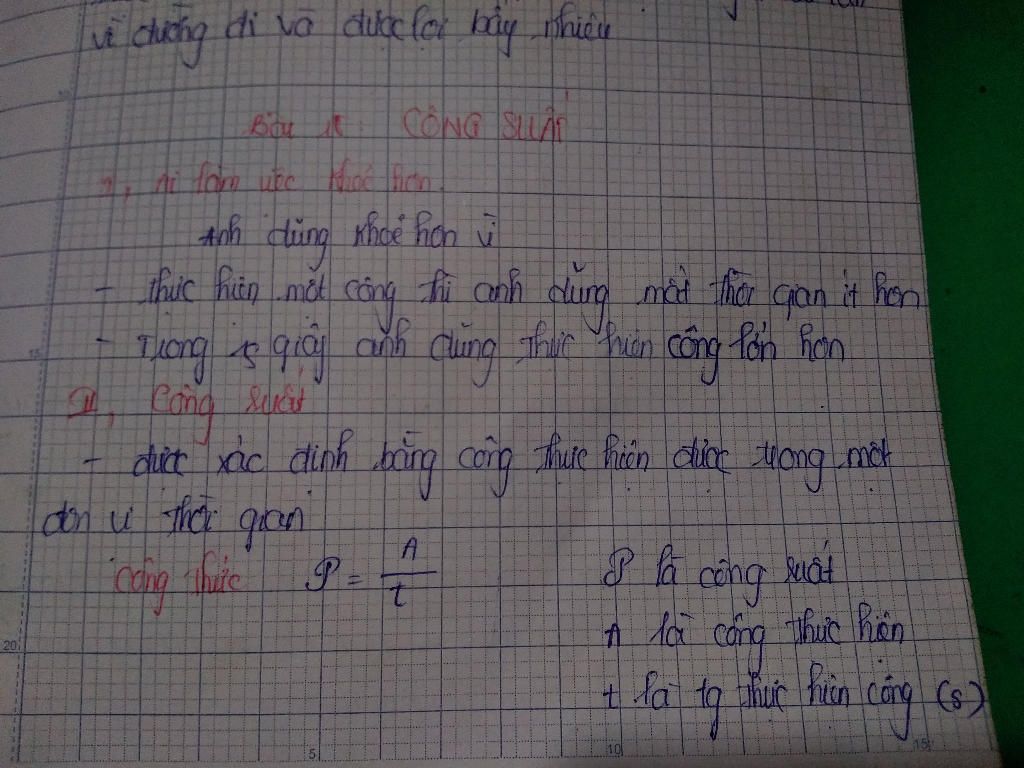 vì đường đi và được lợi bấy nhiêu
CÔNG SUẤT
I, Ai làm việc khoẻ hơn
Anh dũng khoẻ hơn vì
- thực hiện một công thì anh dũng mất thời gian ít hơn
- Trong 1s giây anh dũng thực hiện công lớn hơn
II, Công suất
- được xác định bằng công thực hiện được trong một
đơn vị thời gian
công thức P = A / t
P là công suất
A là công thực hiện
t là tg thực hiện công (s)
20
5
10
15